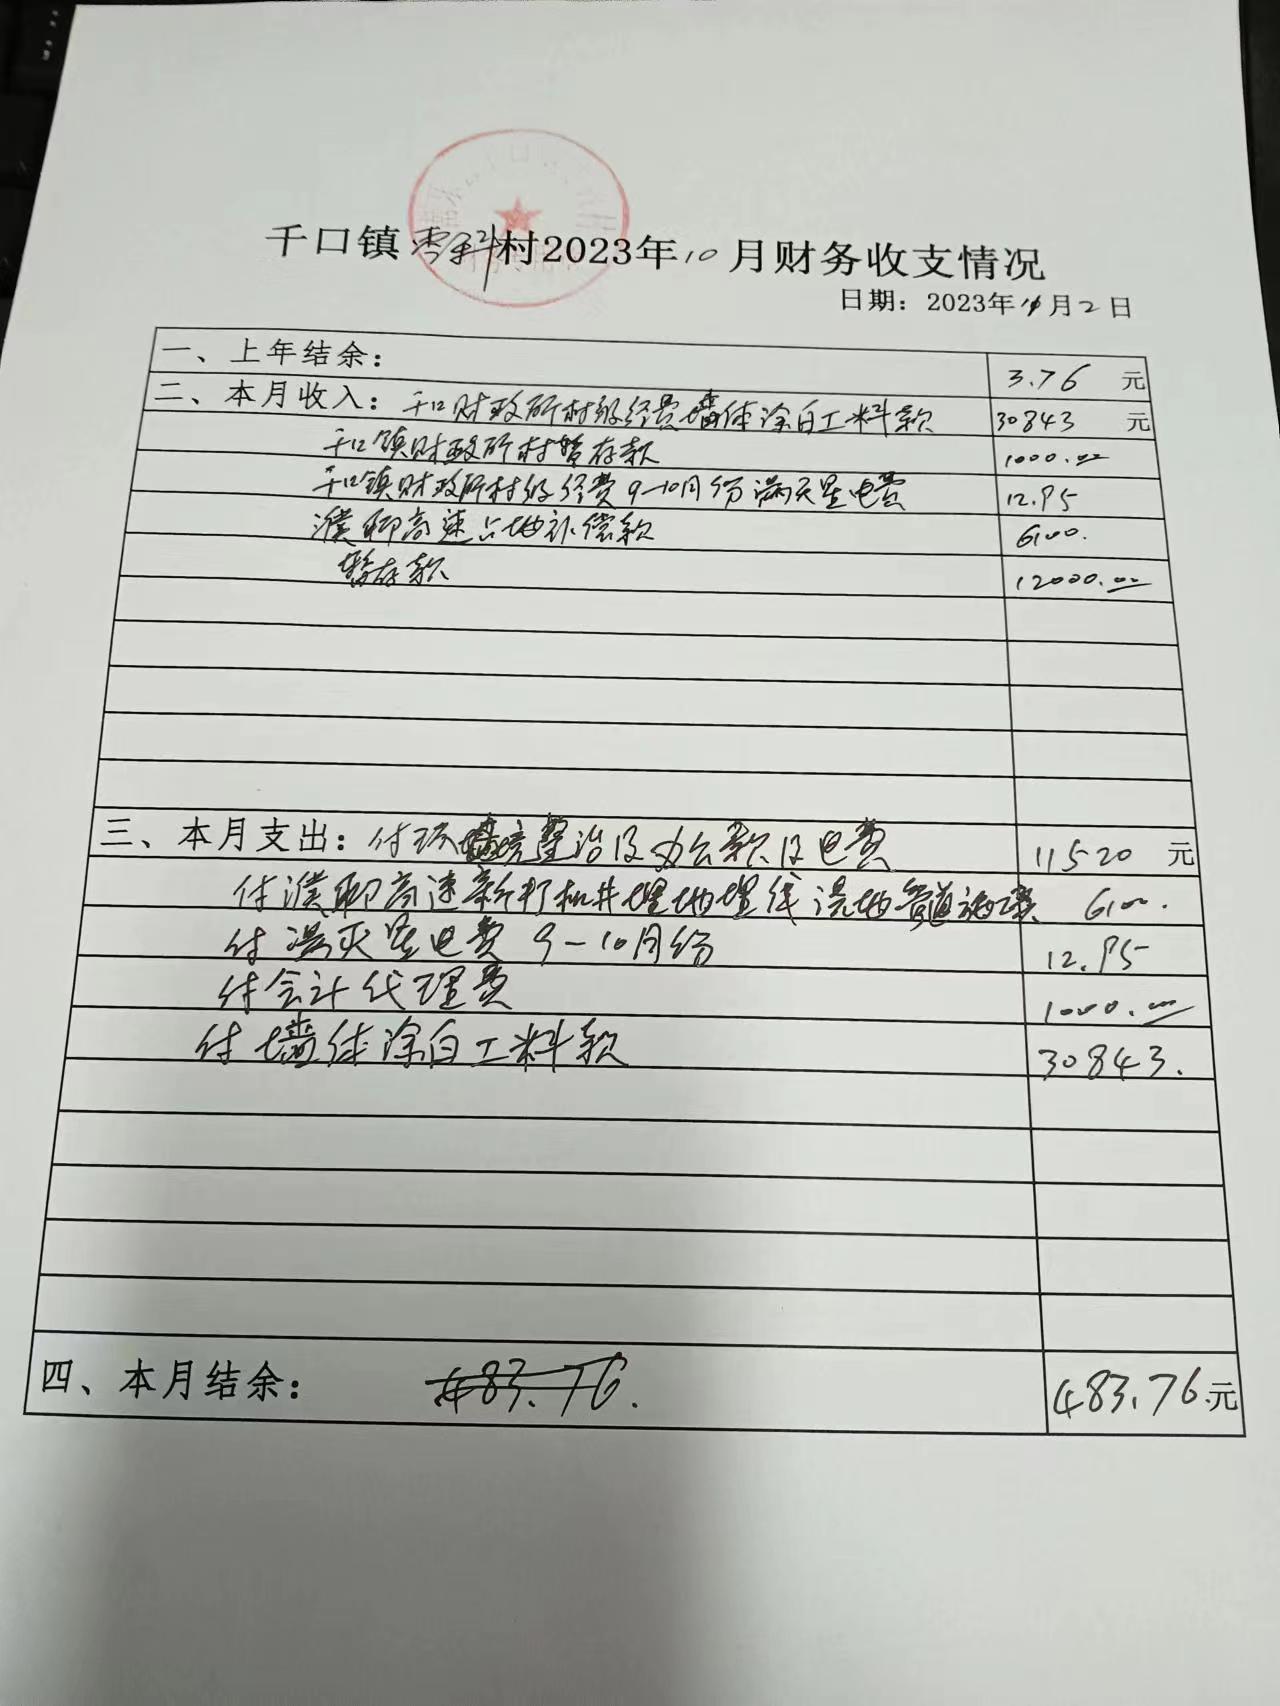 千口镇 村2023年10月财务收支情况
日期：2023年11月2日
一、上年结余： 3.76 元
二、本月收入：千口财政所村级经费墙体涂白工料款 30843 元
千口镇财政所村暂存款 1000.00
千口镇财政所村级经费9-10月份满天星电费 12.95
濮聊高速占地补偿款 6100.
暂存款 12000.00
三、本月支出：付环境整治及办公款及电费 11520 元
付濮聊高速新打机井埋地埋线浇地管道 6100.
付满天星电费9-10月份 12.95
付会计代理费 1000.00
付墙体涂白工料款 30843.
四、本月结余： 483.76. 483.76.元